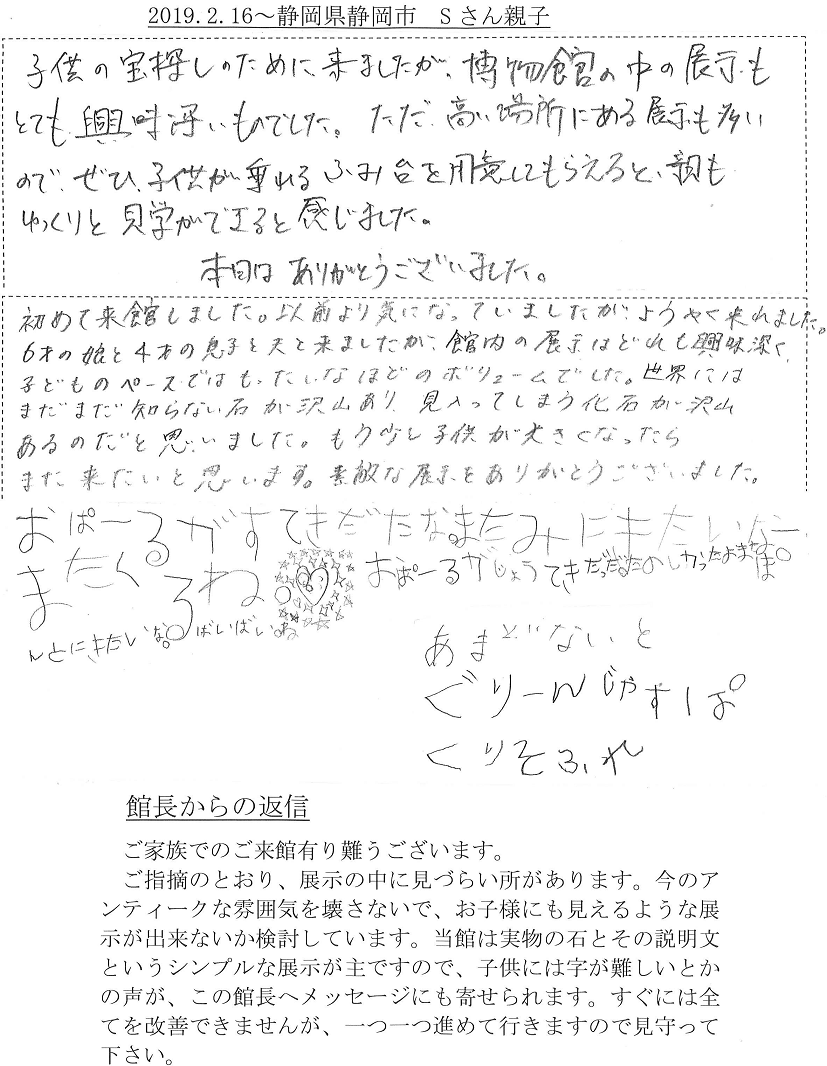 2019.2.16～静岡県静岡市　Sさん親子
子供の宝探しのために来ましたが、博物館の中の展示も
とても興味深いものでした。ただ、高い場所にある展示も多い
ので、ぜひ、子供が乗れるふみ台を用意してもらえると、親も
ゆっくりと見学ができると感じました。
本日はありがとうございました。
初めて来館しました。以前より気になっていましたが、ようやく来れました。
6才の娘と4才の息子と夫と来ましたが、館内の展示はどれも興味深く、
子どものペースではもったいなほどのボリュームでした。世界には
まだまだ知らない石が沢山あり、見入ってしまう化石が沢山
あるのだと思いました。もう少し子供が大きくなったら
また来たいと思います。素敵な展示をありがとうございました。
おぱーるがすてきだたな。またみにきたいなー
またくるね。
おぱーるがじょうてきだっだなたのしかったよまたほ
んとにきたいな。ばいばいね
あまぞないと
ぐりーんじゃすぱ
くりそふれ
館長からの返信
ご家族でのご来館有り難うございます。
ご指摘のとおり、展示の中に見づらい所があります。今のア
ンティークな雰囲気を壊さないで、お子様にも見えるような展
示が出来ないか検討しています。当館は実物の石とその説明文
というシンプルな展示が主ですので、子供には字が難しいとか
の声が、この館長へメッセージにも寄せられます。すぐには全
てを改善できませんが、一つ一つ進めて行きますので見守って
下さい。